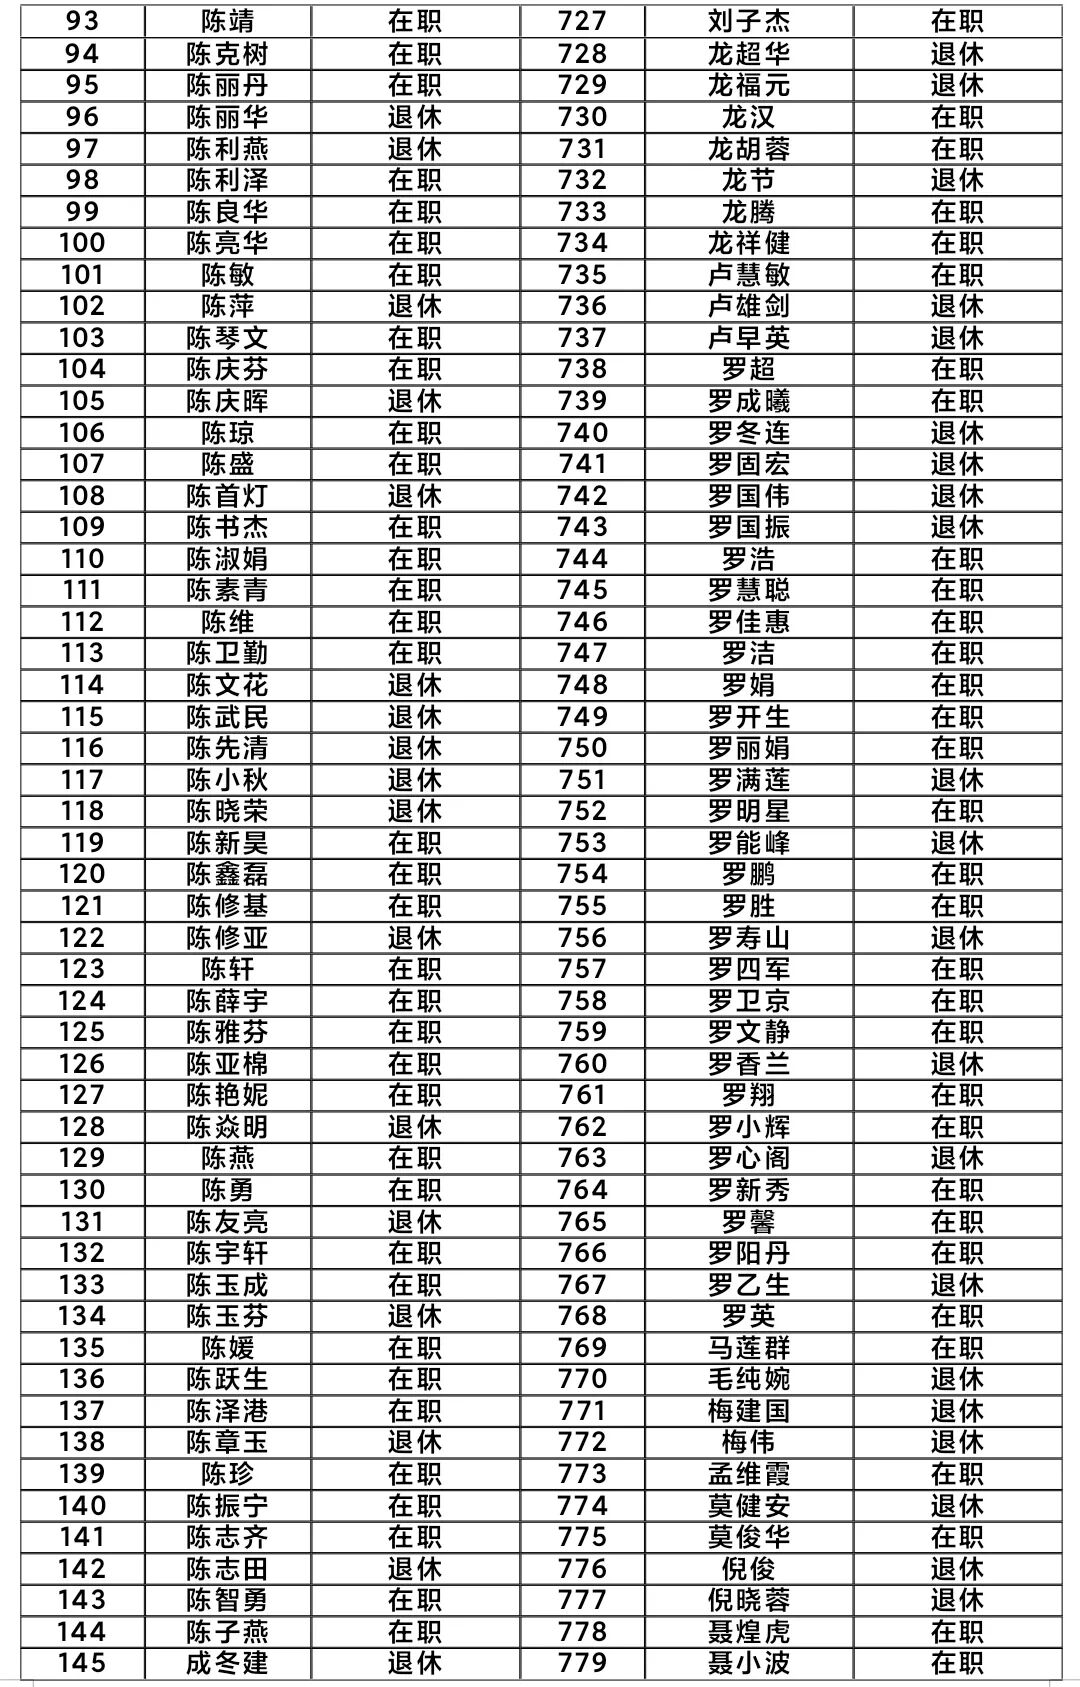 93 陈靖 在职 727 刘子杰 在职
94 陈克树 在职 728 龙超华 退休
95 陈丽丹 在职 729 龙福元 退休
96 陈丽华 退休 730 龙汉 在职
97 陈利燕 退休 731 龙胡蓉 在职
98 陈利泽 在职 732 龙节 退休
99 陈良华 在职 733 龙腾 在职
100 陈亮华 在职 734 龙祥健 在职
101 陈敏 在职 735 卢慧敏 在职
102 陈萍 退休 736 卢雄剑 退休
103 陈琴文 在职 737 卢早英 退休
104 陈庆芬 在职 738 罗超 在职
105 陈庆晖 退休 739 罗成曦 在职
106 陈琼 在职 740 罗冬连 退休
107 陈盛 在职 741 罗固宏 退休
108 陈首灯 退休 742 罗国伟 退休
109 陈书杰 在职 743 罗国振 退休
110 陈淑娟 在职 744 罗浩 在职
111 陈素青 在职 745 罗慧聪 在职
112 陈维 在职 746 罗佳惠 在职
113 陈卫勤 在职 747 罗洁 在职
114 陈文花 退休 748 罗娟 在职
115 陈武民 退休 749 罗开生 在职
116 陈先清 退休 750 罗丽娟 在职
117 陈小秋 退休 751 罗满莲 退休
118 陈晓荣 退休 752 罗明星 在职
119 陈新昊 在职 753 罗能峰 退休
120 陈鑫磊 在职 754 罗鹏 在职
121 陈修基 在职 755 罗胜 在职
122 陈修亚 退休 756 罗寿山 退休
123 陈轩 在职 757 罗四军 在职
124 陈薛宇 在职 758 罗卫京 在职
125 陈雅芬 在职 759 罗文静 在职
126 陈亚棉 在职 760 罗香兰 退休
127 陈艳妮 在职 761 罗翔 在职
128 陈焱明 退休 762 罗小辉 在职
129 陈燕 在职 763 罗心阁 退休
130 陈勇 在职 764 罗新秀 在职
131 陈友亮 退休 765 罗馨 在职
132 陈宇轩 在职 766 罗阳丹 在职
133 陈玉成 在职 767 罗乙生 退休
134 陈玉芬 退休 768 罗英 在职
135 陈媛 在职 769 马莲群 在职
136 陈跃生 在职 770 毛纯婉 退休
137 陈泽港 在职 771 梅建国 退休
138 陈章玉 退休 772 梅伟 退休
139 陈珍 在职 773 孟维霞 在职
140 陈振宁 在职 774 莫健安 退休
141 陈志齐 在职 775 莫俊华 在职
142 陈志田 退休 776 倪俊 退休
143 陈智勇 在职 777 倪晓蓉 退休
144 陈子燕 在职 778 聂煌虎 在职
145 成冬建 退休 779 聂小波 在职